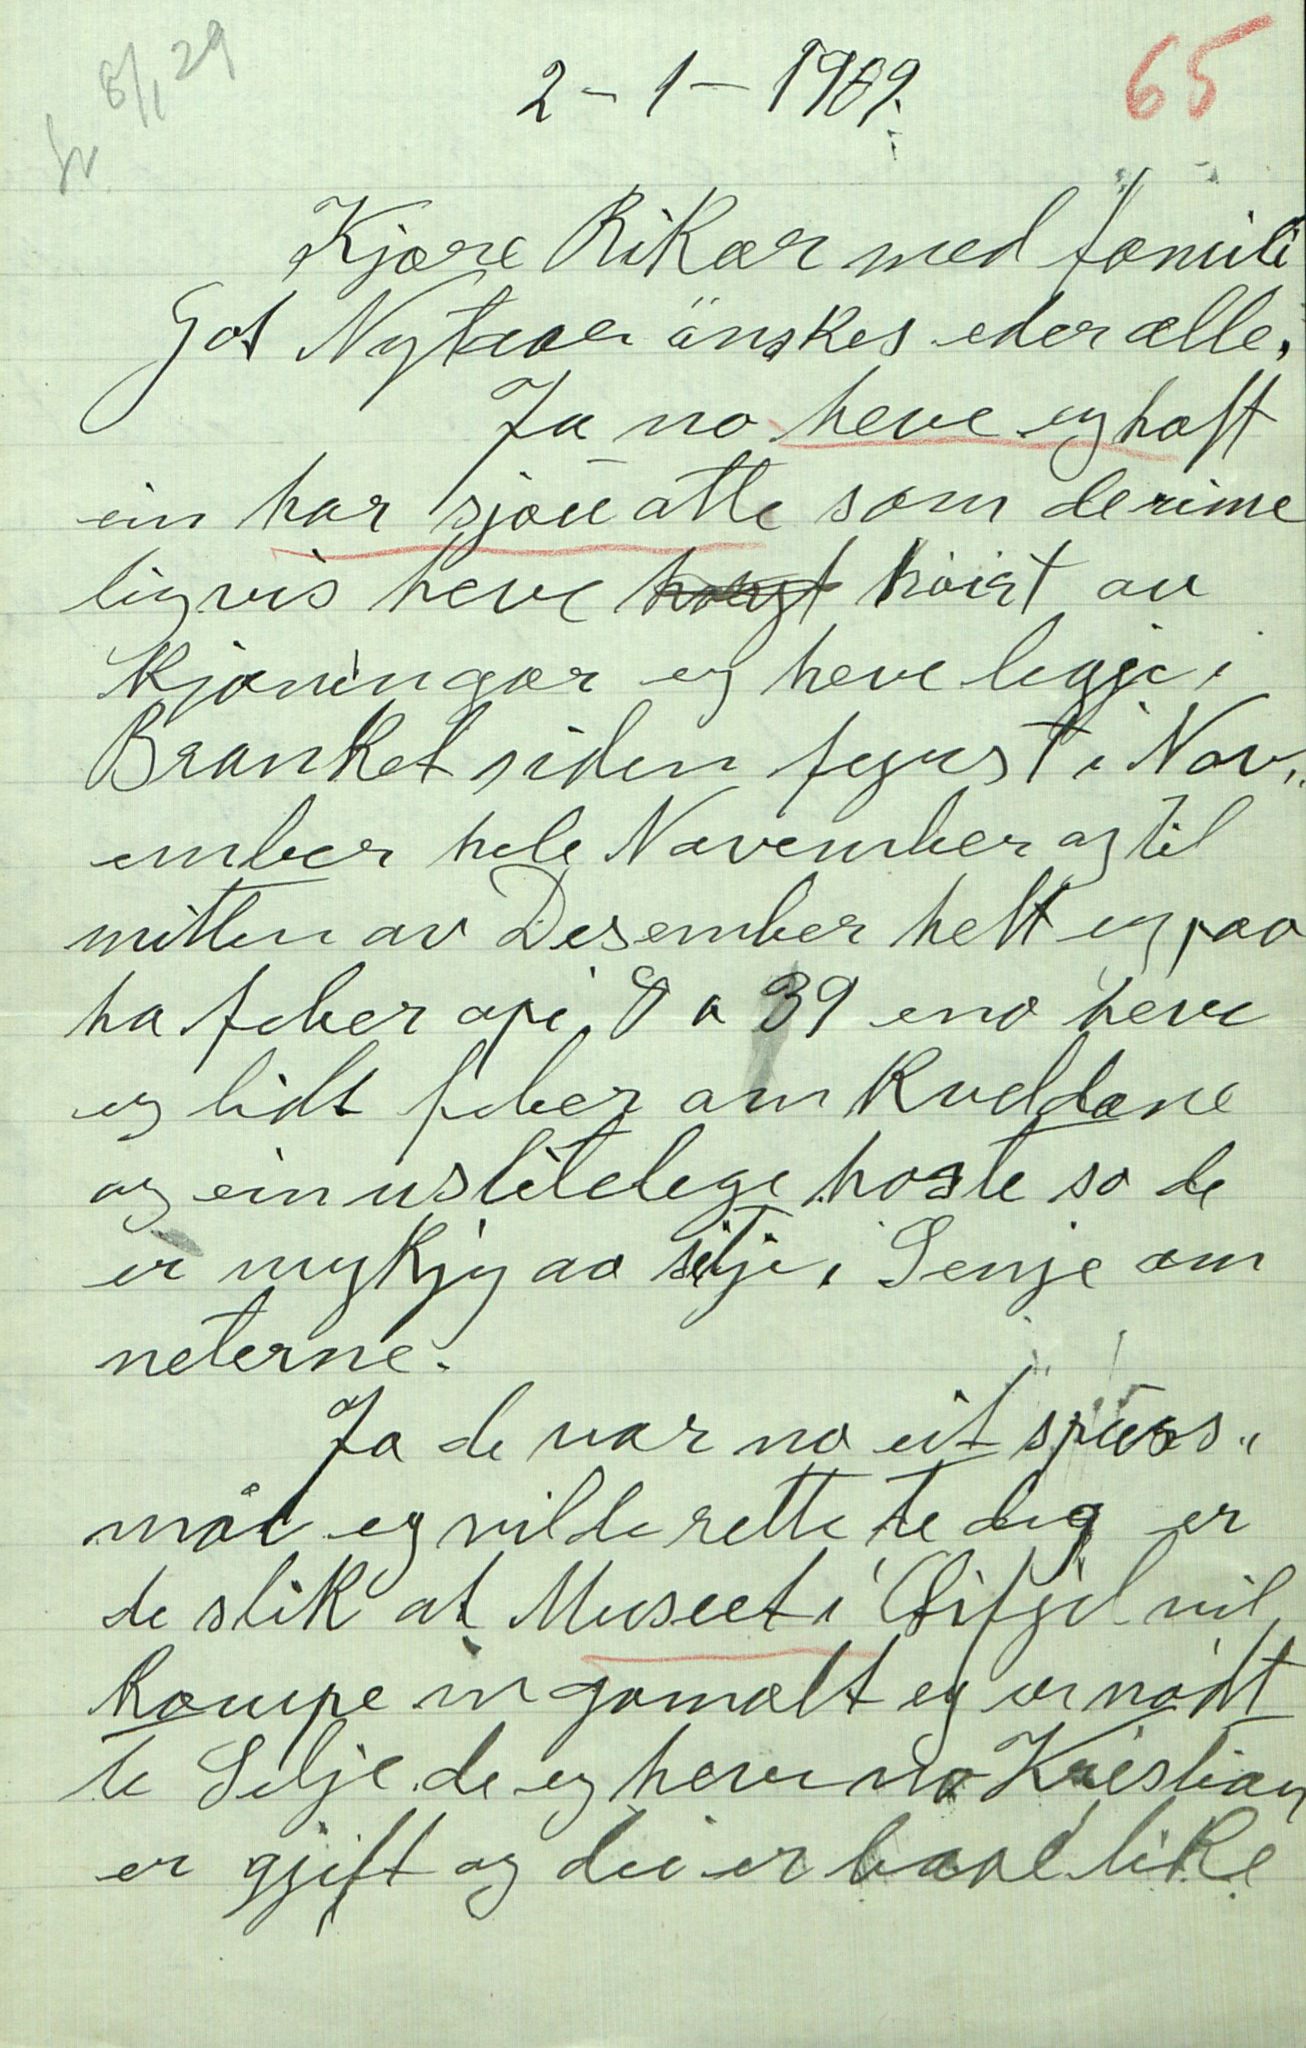 8/1 29
2 – 1 – 1909.
65
Kjære Rikar med famili
Got Nytaar änskes eder alle.
Ja no heve eg haft
ein har sjou atte som de rime
ligvis heve höirt av
Kjoningar eg heve legje i
Branket siden fyrst i Nov„
ember hele November og til
mitten av Desember helt eg paa
ha feber opi 8 a 39 eno heve
eg lidt feber om Kveldane
og ein uslitelege hoste so de
er mykjy ao sitje i Senje om
neterne.
Ja de var no eit spörs„
mål eg vilde rette te dig er
de slik at Museet i vil
Kaupe in gamalt eg er nödt
te Selje de eg heve no Kristian
er gjift og dei er baae like